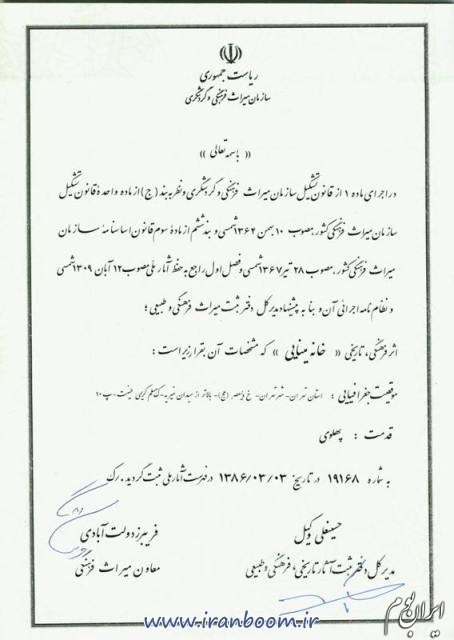 ریاست جمهوری
سازمان میراث فرهنگی و گردشگری
« باسمه تعالی »
در اجرای ماده ۱ از قانون تشکیل سازمان میراث فرهنگی و گردشگری و نظر به بند (ج) از ماده واحدهٔ قانون تشکیل
سازمان میراث فرهنگی کشور مصوب ۱۰ بهمن ۱۳۶۴ شمسی و بند ششم از مادهٔ سوم قانون اساسنامهٔ سازمان
میراث فرهنگی کشور، مصوب ۲۸ تیر ۱۳۶۷ شمسی و فصل اول راجع به حفظ آثار ملی مصوب ۱۲ آبان ۱۳۰۹ شمسی
و نظام نامه اجرائی آن و بنا به پیشنهاد مدیر کل دفتر ثبت میراث فرهنگی و طبیعی ؛
اثر فرهنگی، تاریخی « خانه مینایی » که مشخصات آن بقرار زیر است :
موقعیت جغرافیایی : استان تهران- شهر تهران- خ ولیعصر (عج)- بالاتر از میدان منیریه- ک مسلم کریمی پ ۱۰
قدمت : پهلوی
به شماره ۱۹۱۶۸ در تاریخ ۱۳۸۶/۰۳/۰۳ در فهرست آثار ملی ثبت گردید. رک
حسینعلی وکیل
مدیر کل دفتر ثبت آثار تاریخی، فرهنگی و طبیعی
فریبرز دولت آبادی
معاون میراث فرهنگی
www.iranboom.ir
ایران بوم